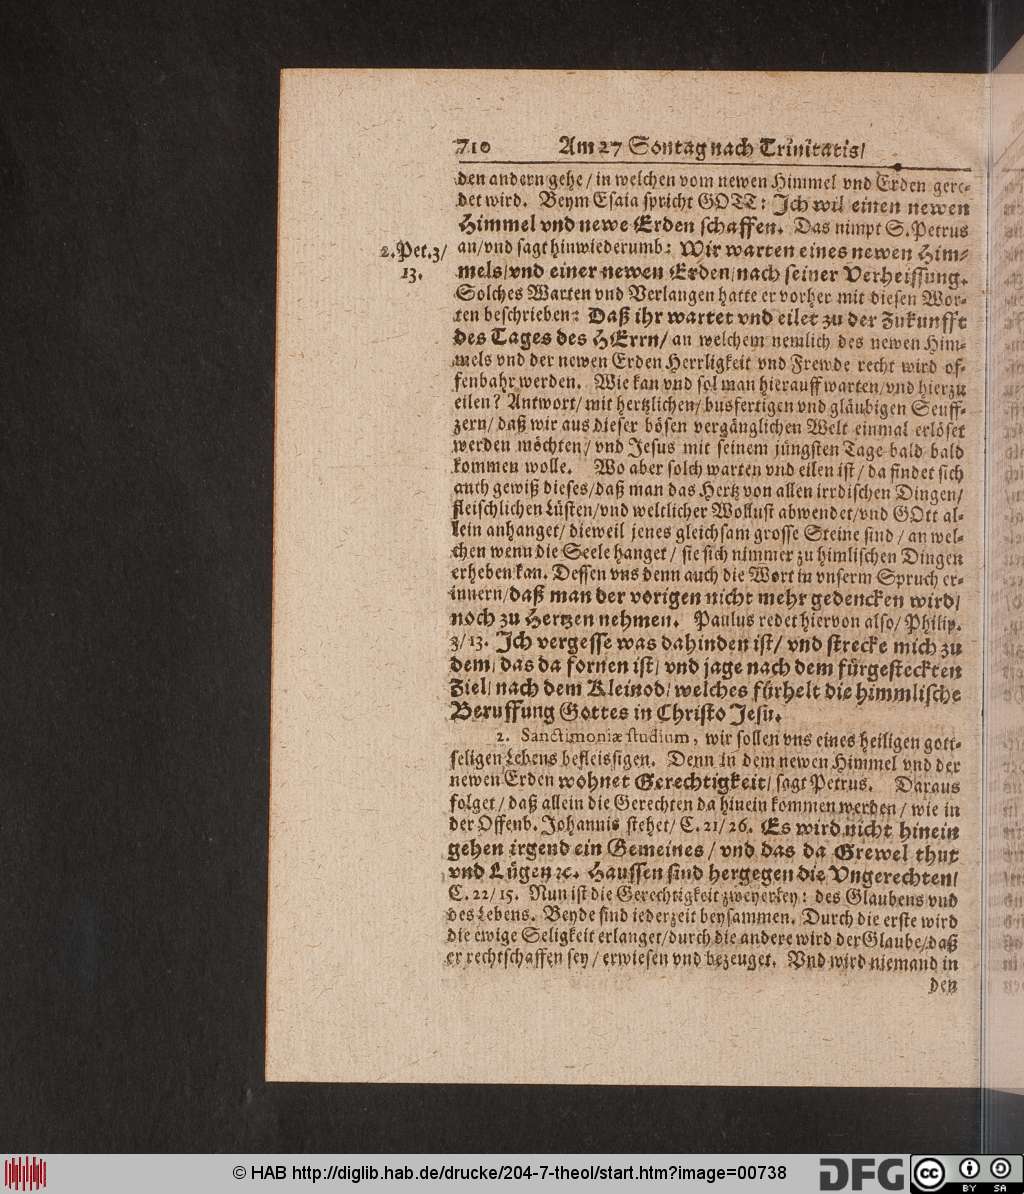 710 Am 27 Sontag nach Trinitatis/
den andern gehe / in welchen vom newen Himmel vnd Erden gere-
det wird. Beym Esaia spricht GOTT: Ich wil einen newen
Himmel vnd newe Erden schaffen. Das nimpt S. Petrus
2. Pet. 3/
13.
an/vnd sagt hinwiederumb: Wir warten eines newen Him-
mels/vnd einer newen Erden/nach seiner Verheissung.
Solches Warten vnd Verlangen hatte er vorher mit diesen Wor-
ten beschrieben: Daß ihr wartet vnd eilet zu der Zukunfft
des Tages des HErrn/ an welchem nemlich des newen Him-
mels vnd der newen Erden Herrligkeit vnd Frewde recht wird of-
fenbahr werden. Wie kan vnd sol man hierauff warten/vnd hierzu
eilen? Antwort/ mit hertzlichen/ busfertigen vnd gläubigen Seuff-
zern/ daß wir aus dieser bösen vergänglichen Welt einmal erlöset
werden möchten/ vnd Jesus mit seinem jüngsten Tage bald bald
kommen wolle. Wo aber solch warten vnd eilen ist/ da findet sich
auch gewiß dieses/daß man das Hertz von allen irrdischen Dingen/
fleischlichen Lüsten/vnd weltlicher Wollust abwendet/vnd GOtt al-
lein anhanget/ dieweil jenes gleichsam grosse Steine sind / an wel-
chen wenn die Seele hanget / sie sich nimmer zu himlischen Dingen
erheben kan. Dessen vns denn auch die Wort in vnserm Spruch er-
innern/daß man der vorigen nicht mehr gedencken wird/
noch zu Hertzen nehmen. Paulus redet hiervon also/ Philip.
3/ 13. Ich vergesse was dahinden ist/ vnd strecke mich zu
dem/ das da fornen ist/ vnd jage nach dem fürgesteckten
Ziel/ nach dem Kleinod/ welches fürhelt die himmlische
Beruffung Gottes in Christo Jesu.
2. Sanctimoniæ studium, wir sollen vns eines heiligen gott-
seligen Lebens befleissigen. Denn in dem newen Himmel vnd der
newen Erden wohnet Gerechtigkeit/ sagt Petrus. Daraus
folget/ daß allein die Gerechten da hinein kommen werden / wie in
der Offenb. Johannis stehet/ C. 21/ 26. Es wird nicht hinein
gehen irgend ein Gemeines / vnd das da Grewel thut
vnd Lügen ꝛc. Haussen sind hergegen die Vngerechten/
C. 22/ 15. Nun ist die Gerechtigkeit zweyerley: des Glaubens vnd
des Lebens. Beyde sind iederzeit beysammen. Durch die erste wird
die ewige Seligkeit erlanget/durch die andere wird der Glaube/daß
er rechtschaffen sey / erwiesen vnd bezeuget. Vnd wird niemand in
den
© HAB http://diglib.hab.de/drucke/204-7-theol/start.htm?image=00738
DFG
cc BY SA